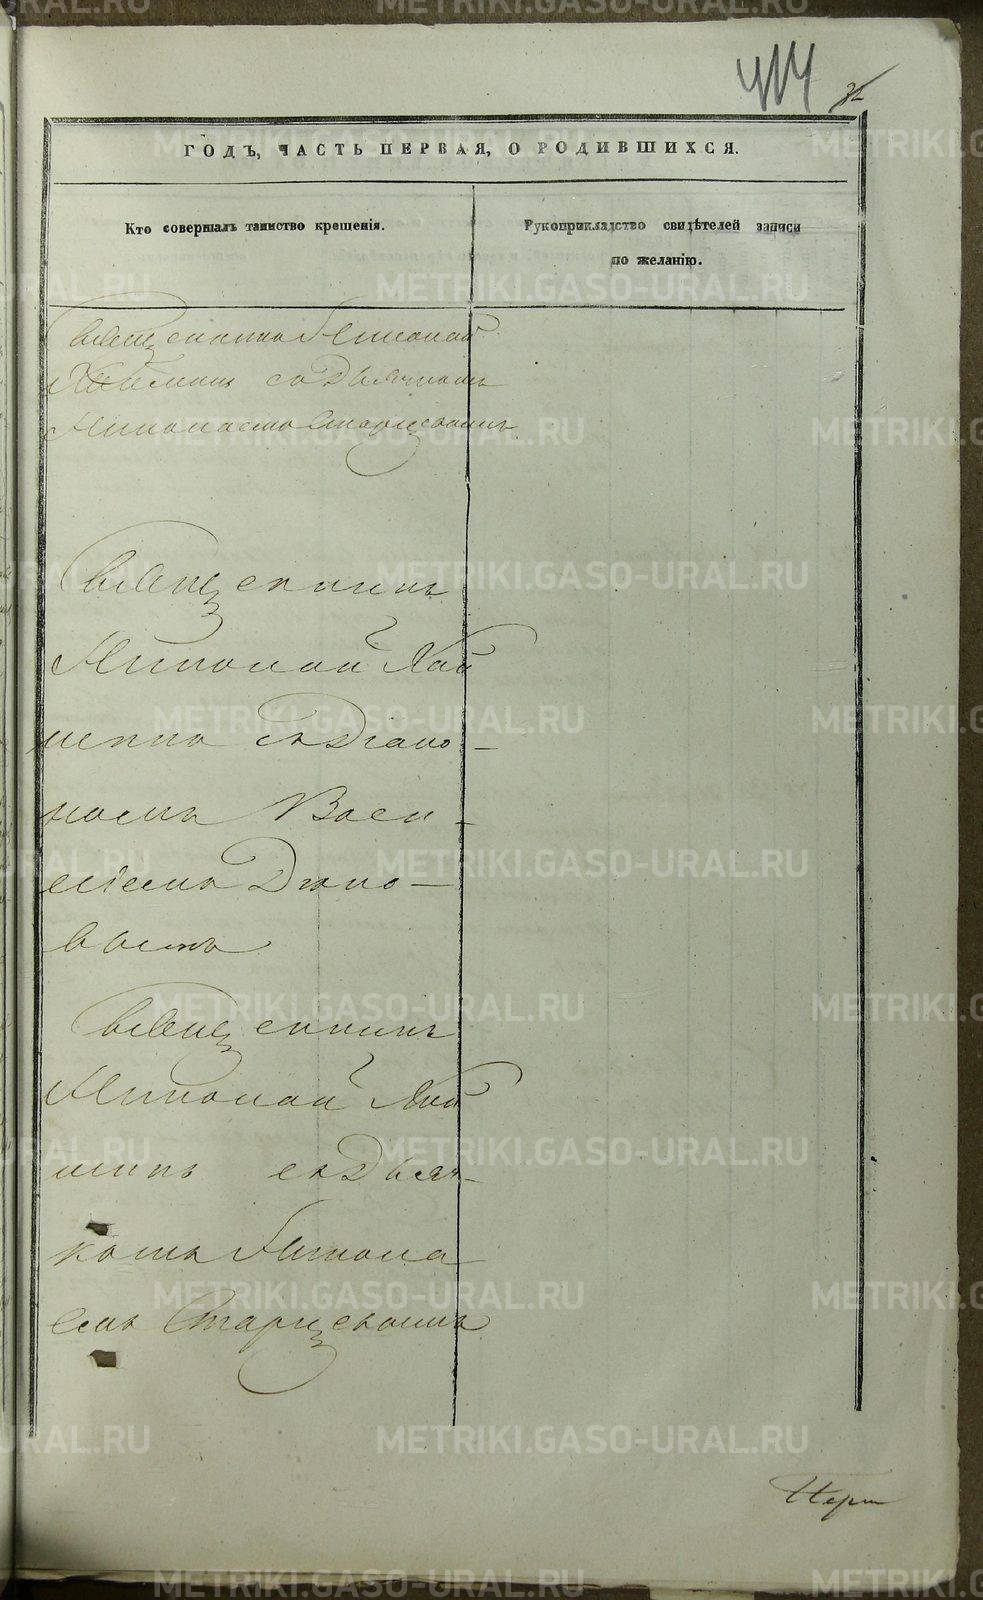 414
ГОДЪ, ЧАСТЬ ПЕРВАЯ, О РОДИВШИХСЯ.
Кто совершалъ таинство крещенія.
Рукоприкладство свидѣтелей записи
по желанію.
Священникъ Николай
съ Дьячкомъ
Николаемъ Старцевымъ
Священникъ
Николай
съ Діако-
номъ Васи-
ліемъ
вымъ
Священникъ
Николай
съ Дьяч-
комъ Никола
емъ Старцевымъ
METRIKI.GASO-URAL.RU